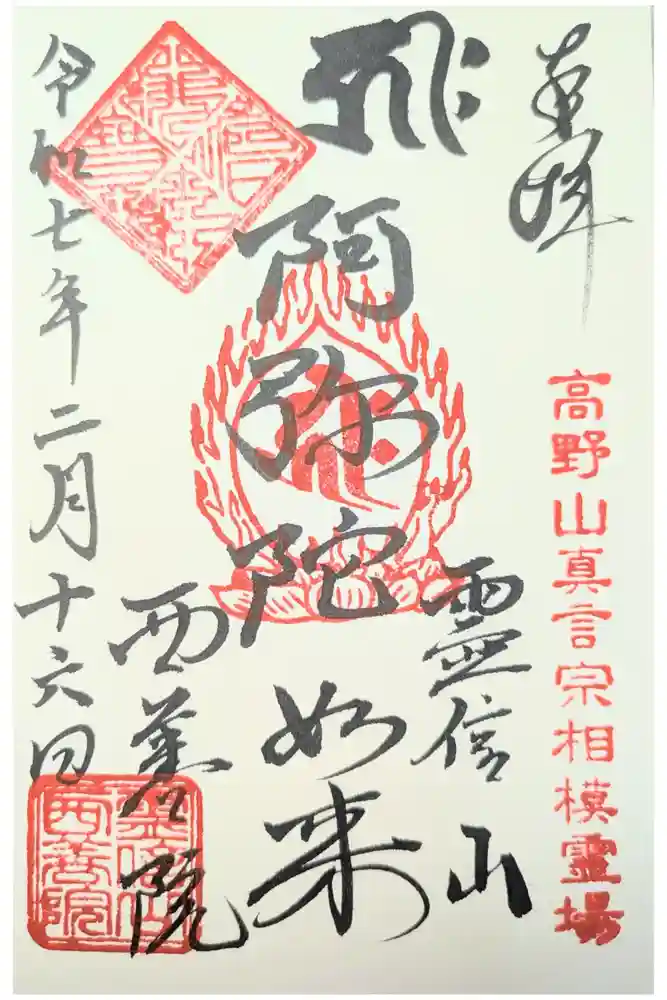 奉拝
高野山真言宗相模霊場
霊信山
阿弥陀如来
西善院
令和七年二月十六日
西善院